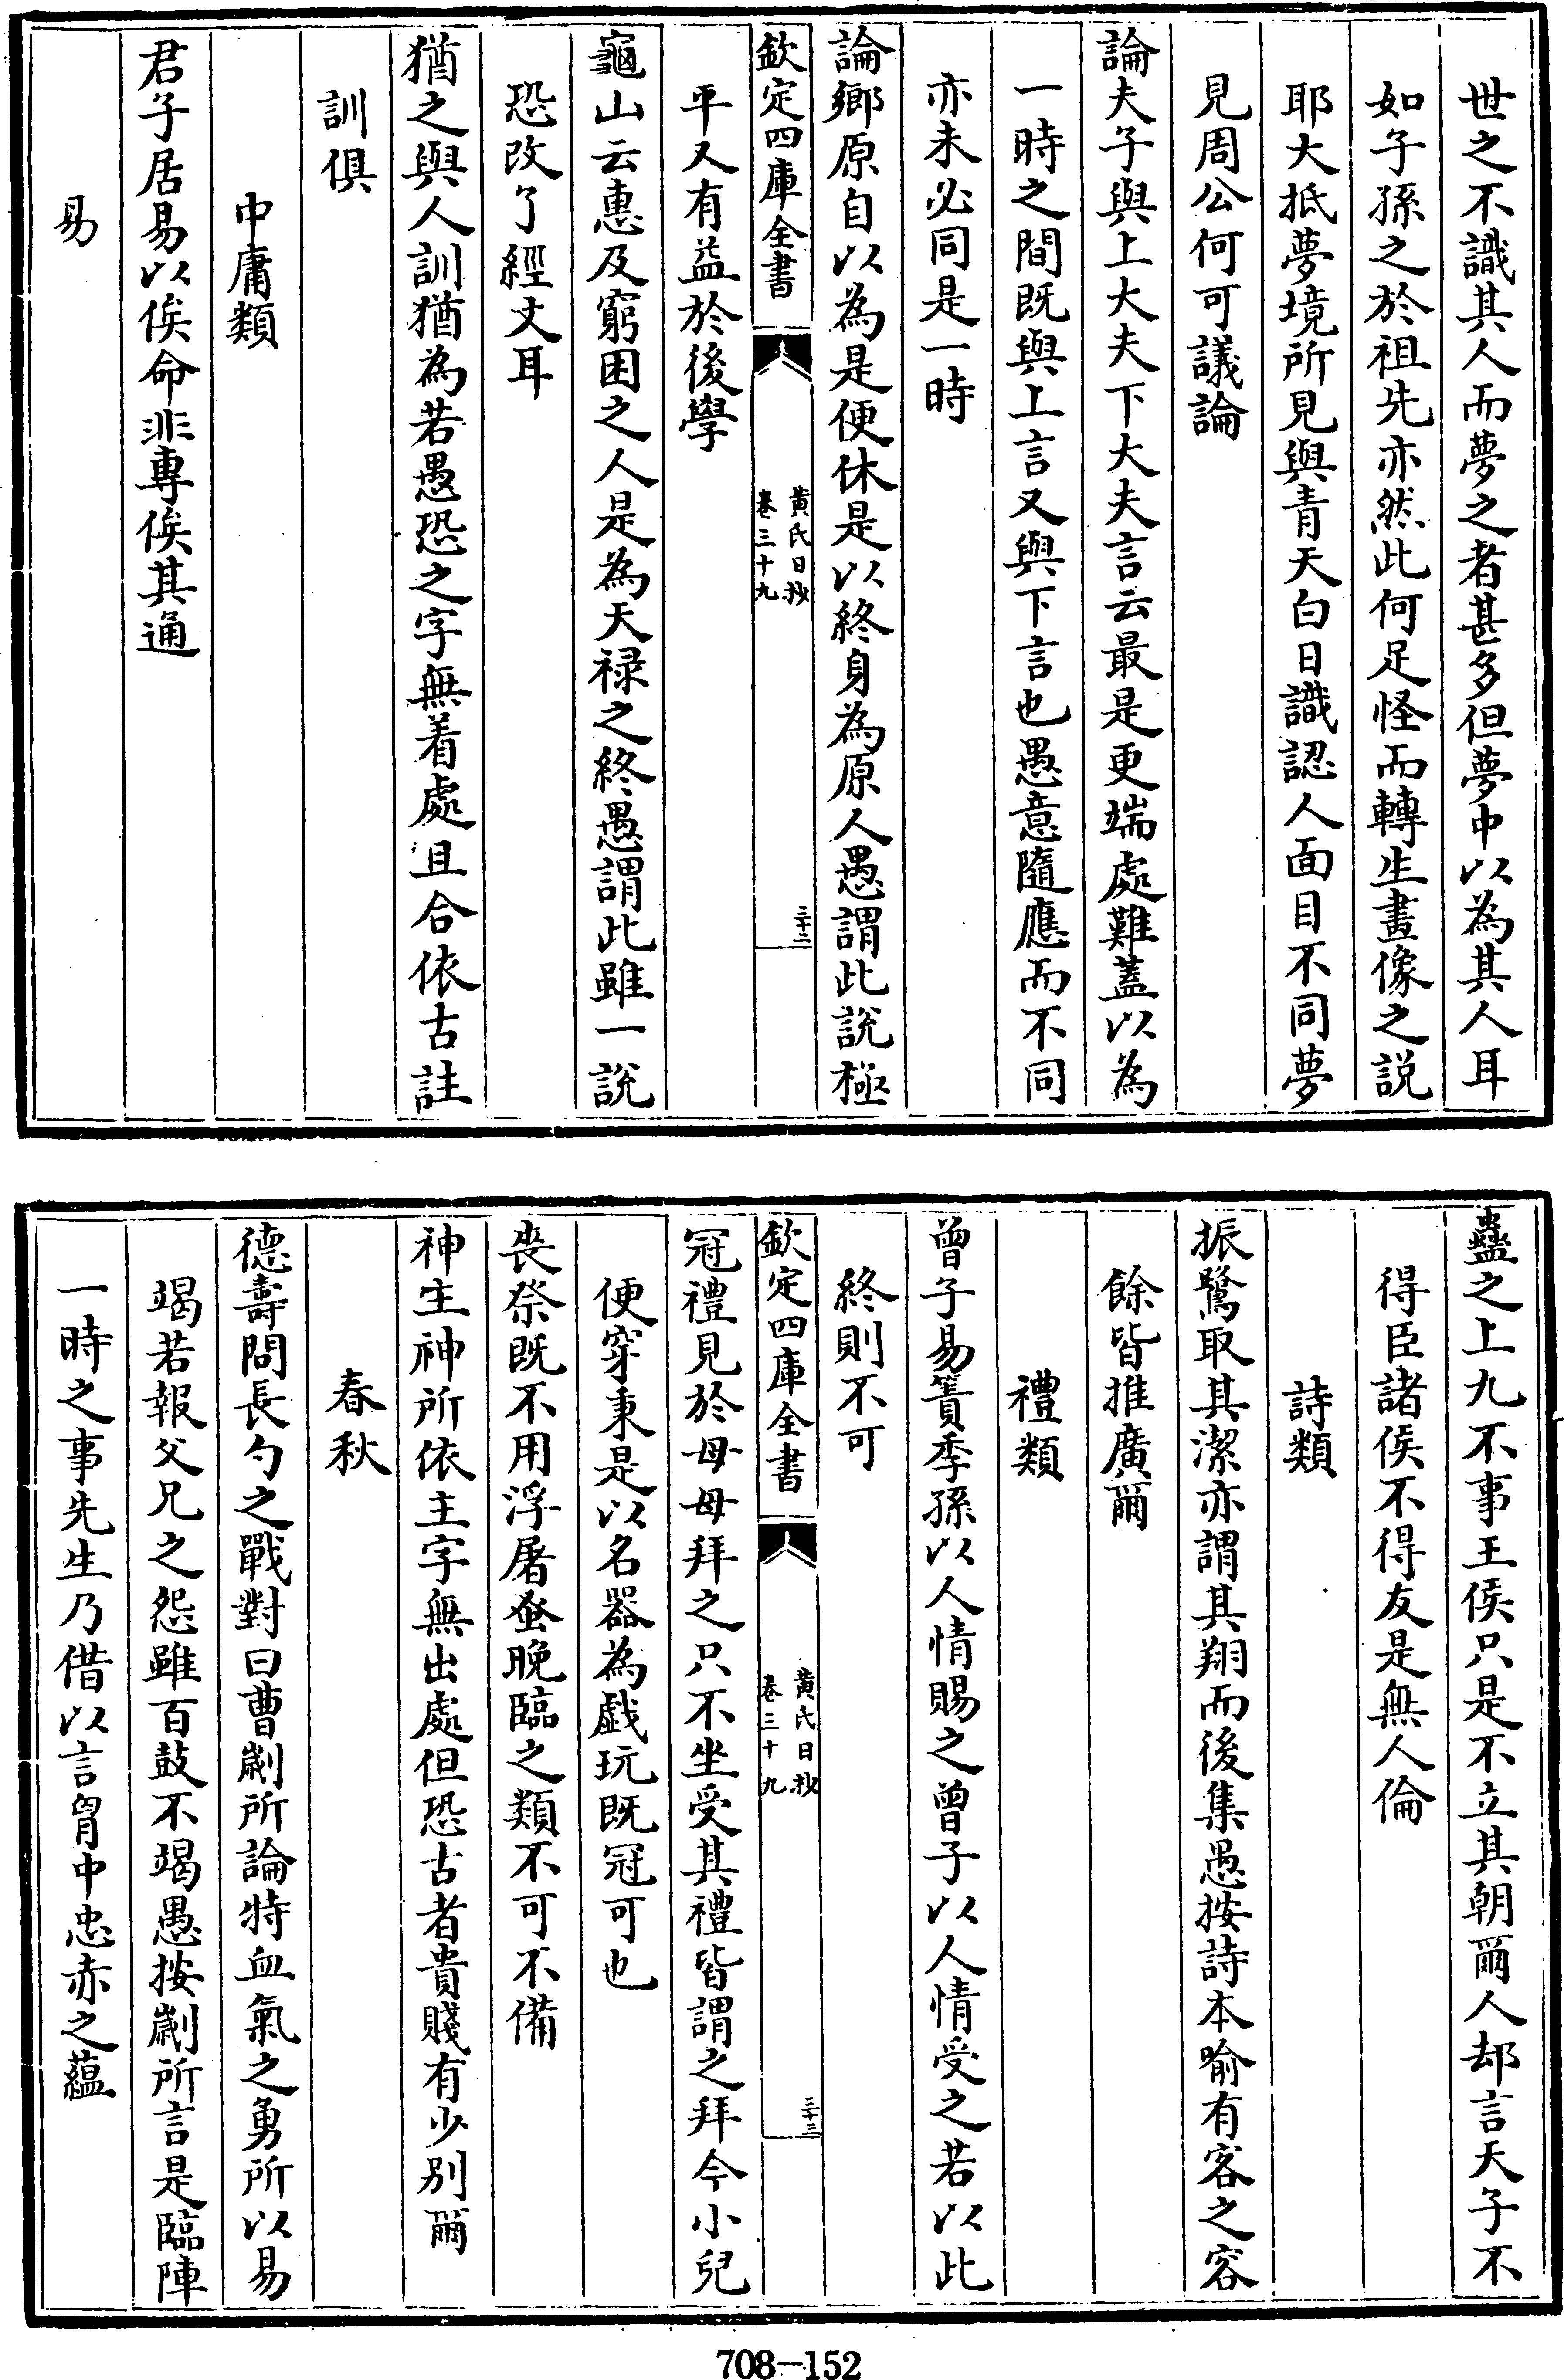 世之不識其人而夢之者甚多但夢中以為其人耳
如子孫之於祖先亦然此何足怪而轉生畫像之説
耶大抵夢境所見與青天白日識認人面目不同夢
見周公何可議論
論夫子與上大夫下大夫言云最是更端處難蓋以為
一時之間既與上言又與下言也愚意隨應而不同
亦未必同是一時
論鄉原自以為是便休是以終身為原人愚謂此說極
欽定四庫全書
黄氏日抄
卷三十九
三十二
平又有益於後學
龜山云惠及窮困之人是為天禄之終愚謂此雖一說
恐改了經文耳
猶之與人訓猶為若愚恐之字無着處且合依古註
訓俱
中庸類
君子居易以俟命非專俟其通
易
蠱之上九不事王侯只是不立其朝爾人却言天子不
得臣諸侯不得友是無人倫
詩類
振鷺取其潔亦謂其翔而後集愚按詩本喻有客之容
餘皆推廣爾
禮類
曾子易簀季孫以人情賜之曾子以人情受之若以此
終則不可
欽定四庫全書
黄氏日抄
卷三十九
三十三
冠禮見於母母拜之只不坐受其禮皆謂之拜今小兒
便穿秉是以名器為戯玩既冠可也
喪祭既不用浮屠蚤晚臨之類不可不備
神主神所依主字無出處但恐古者貴賤有少别爾
春秋
德壽問長勺之戰對曰曹劌所論特血氣之勇所以易
竭若報父兄之怨雖百鼓不竭愚按劌所言是臨陣
一時之事先生乃借以言胷中忠赤之藴
708-152